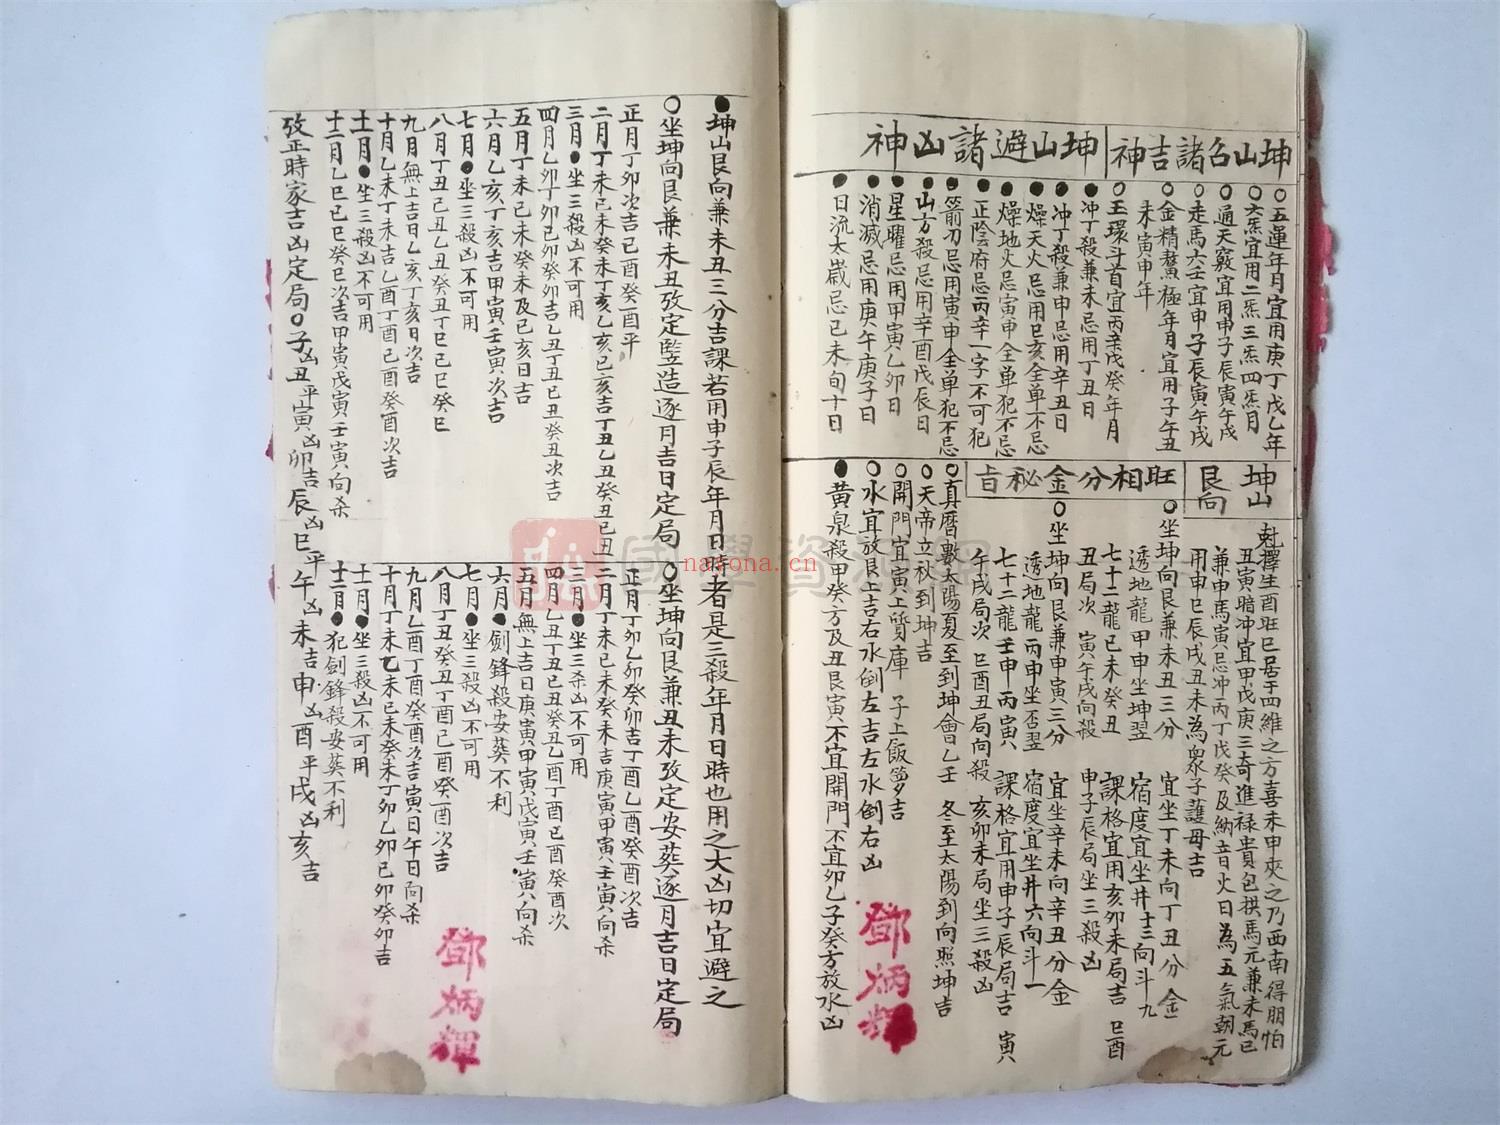 坤山召諸吉神
○五運年月宜用庚丁戊乙年
○六炁宜用二炁三炁四炁月
○通天竅宜用申子辰寅午戌
○走馬六壬宜申子辰寅午戌
○金精鰲極年月宜用子午丑
未寅申年
○玉環斗首宜丙辛戊癸年月
坤山避諸凶神
●冲丁殺兼未忌用丁丑日
●冲丁殺兼申忌用辛丑日
●燥天火忌用巳亥全单不忌
●燥地火忌寅申全单犯不忌
●正陰府忌丙辛一字不可犯
●箭刃忌用寅申全单犯不忌
●山方殺忌用辛酉戊辰日
●星曜忌用甲寅乙卯日
●消滅忌用庚午庚子日
●日流太歲忌己未旬十日
坤山
艮向
尅擇生酉旺巳居于四維之方喜未申夾之乃西南得朋怕
丑寅暗冲宜甲戊庚三奇進禄貴包拱馬元兼未馬巳
兼申馬寅忌冲丙丁戊癸及納音火日為五氣朝元
用申巳辰戌丑未為衆子護母吉
旺相分金秘旨
○坐坤向艮兼未丑三分 宜坐丁未向丁丑分金
透地龍甲申坐坤翌 宿度宜坐井十三向斗九
七十二龍己未癸丑 課格宜用亥卯未局吉 巳酉
丑局次 寅午戌向殺 申子辰局坐三殺凶
○坐坤向艮兼申寅三分 宜坐辛未向辛丑分金
透地龍丙申坐否翌 宿度宜坐井六向斗一
七十二龍壬申丙寅 課格宜用申子辰局吉 寅
午戌局次 巳酉丑局向殺 亥卯未局坐三殺凶
○真曆數太陽夏至到坤會乙壬 冬至太陽到向照坤吉
○天帝立秋到坤吉
○開門宜寅上質庫 子上飯箩吉
○水宜放艮上吉右水倒左吉左水倒右凶
●黄泉殺甲癸方及丑艮寅不宜開門不宜卯乙子癸方放水凶
鄧炳輝
●坤山艮向兼未丑三分吉課若用申子辰年月日時者是三殺年月日時也用之大凶切宜避之
○坐坤向艮兼未丑攷定監造逐月吉日定局
正月丁卯次吉己酉癸酉平
二月丁未己未癸未丁亥乙亥己亥吉丁丑乙丑癸丑己丑
三月●坐三殺凶不可用
四月乙卯丁卯己卯癸卯吉乙丑丁丑己丑癸丑次吉
五月丁未己未癸未及己亥日吉
六月乙亥丁亥吉甲寅壬寅次吉
七月●坐三殺凶不可用
八月丁丑己丑乙丑癸丑丁巳己巳癸巳
九月無上吉日乙亥丁亥日次吉
十月乙未丁未吉乙酉丁酉己酉癸酉次吉
十一月●坐三殺凶不可用
十二月乙巳己巳癸巳次吉甲寅戊寅壬寅向杀
○坐坤向艮兼丑未攷定安葬逐月吉日定局
正月丁卯乙卯癸卯吉丁酉乙酉癸酉次吉
二月丁未己未癸未吉庚寅甲寅壬寅向杀
三月●坐三杀凶不可用
四月乙丑丁丑己丑癸丑乙酉丁酉己酉癸酉次
五月無上吉日庚寅甲寅戊寅壬寅向杀
六月●劍鋒殺安葬不利
七月●坐三殺凶不可用
八月丁丑癸丑丁酉己酉癸酉次吉
九月乙酉丁酉癸酉次吉寅日午日向杀
十月丁未乙未己未癸未丁卯乙卯己卯癸卯吉
十一月●坐三殺凶不可用
十二月●犯劍鋒殺安葬不利
攷正時家吉凶定局○子凶丑平寅凶卯吉辰凶巳平午凶未吉申凶酉平戌凶亥吉
鄧炳輝
國學資源網
nayona.cn